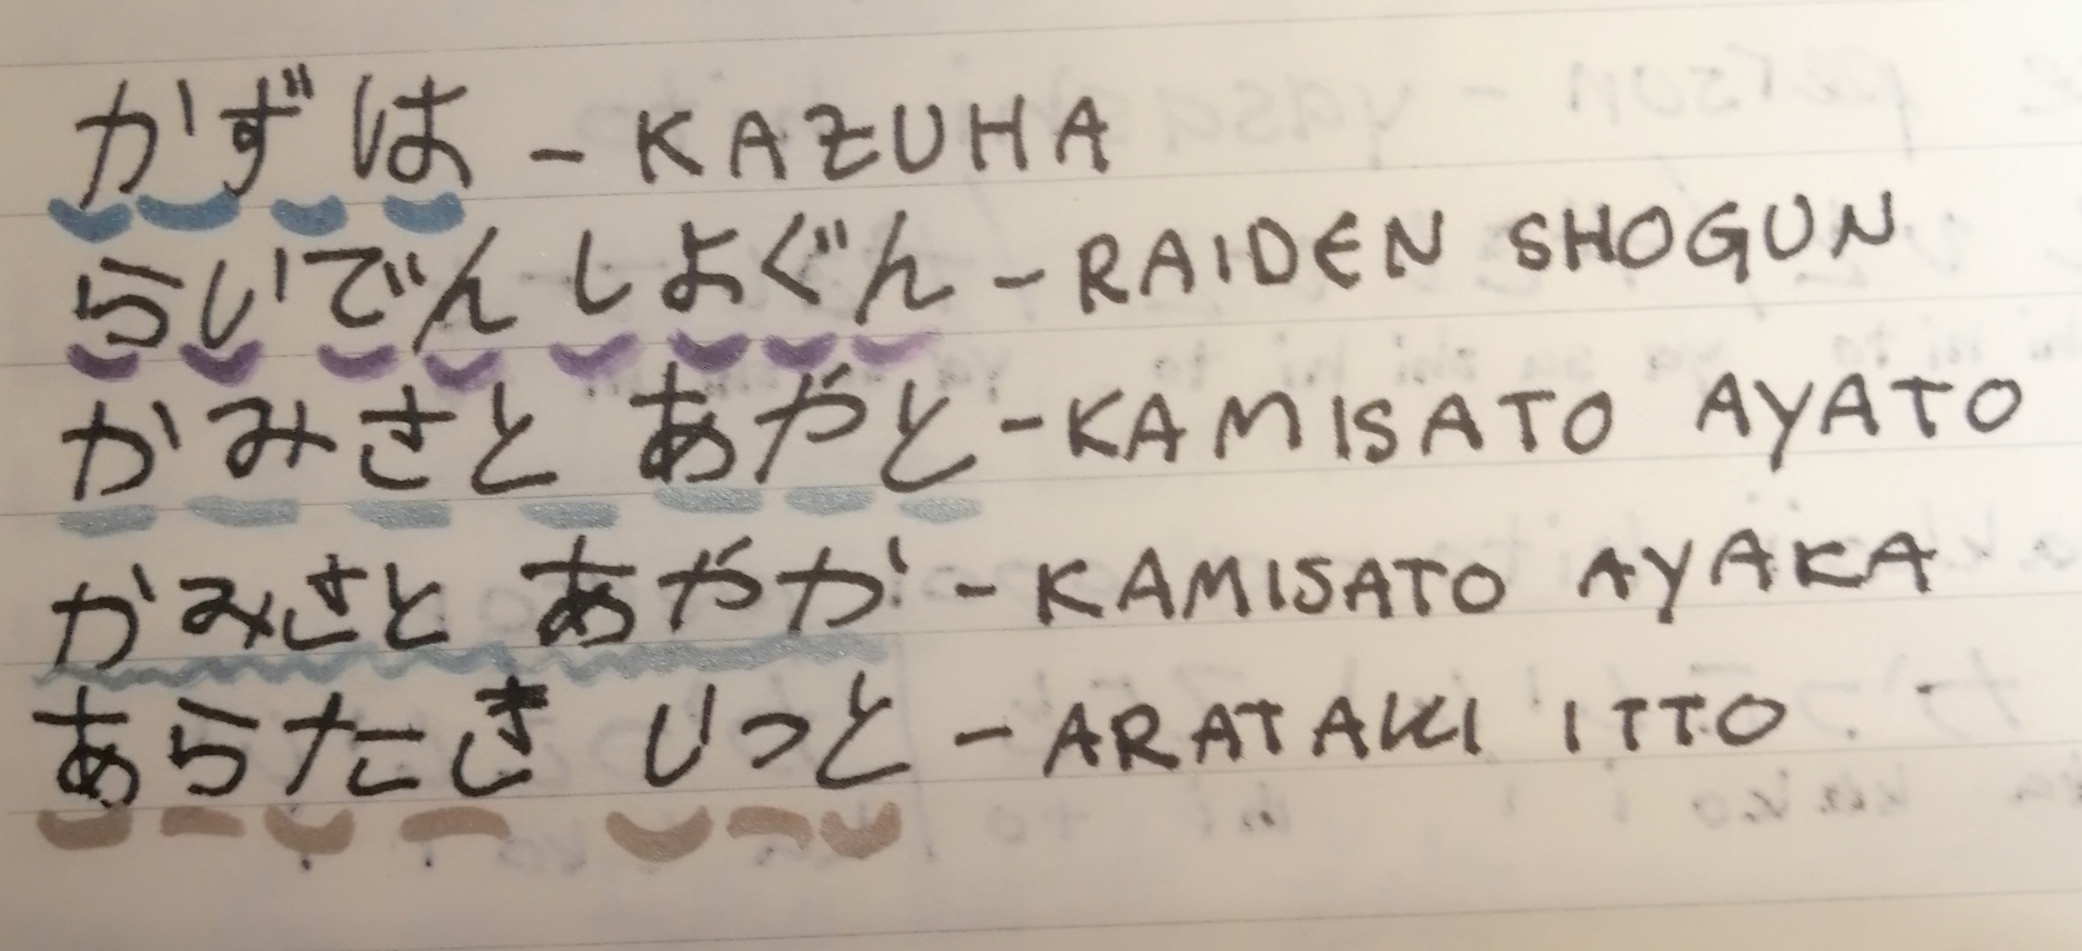 かずは - KAZUHA
らいでん しよぐん - RAIDEN SHOGUN
かみさと あやと - KAMISATO AYATO
かみさと あやか - KAMISATO AYAKA
あらたき いっと - ARATAKI ITTO